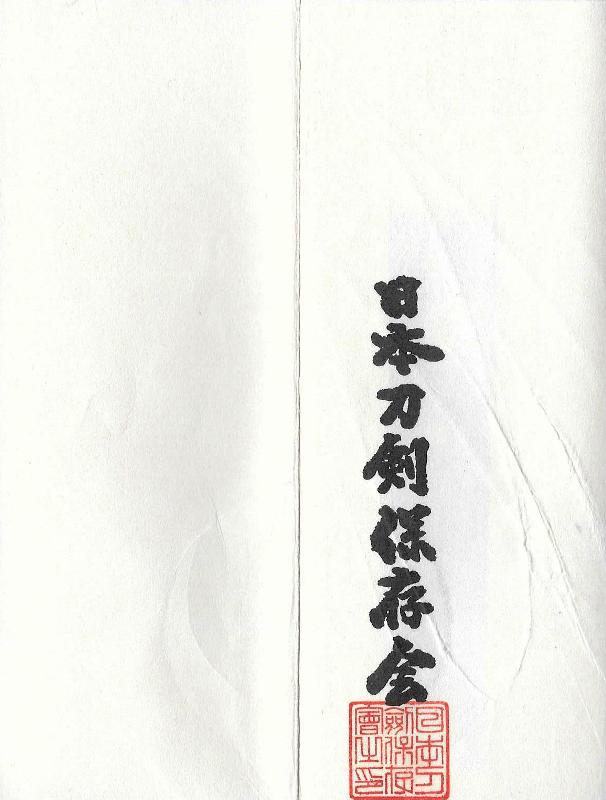 日本刀剣保存会
日本刀
劍保存
會之印